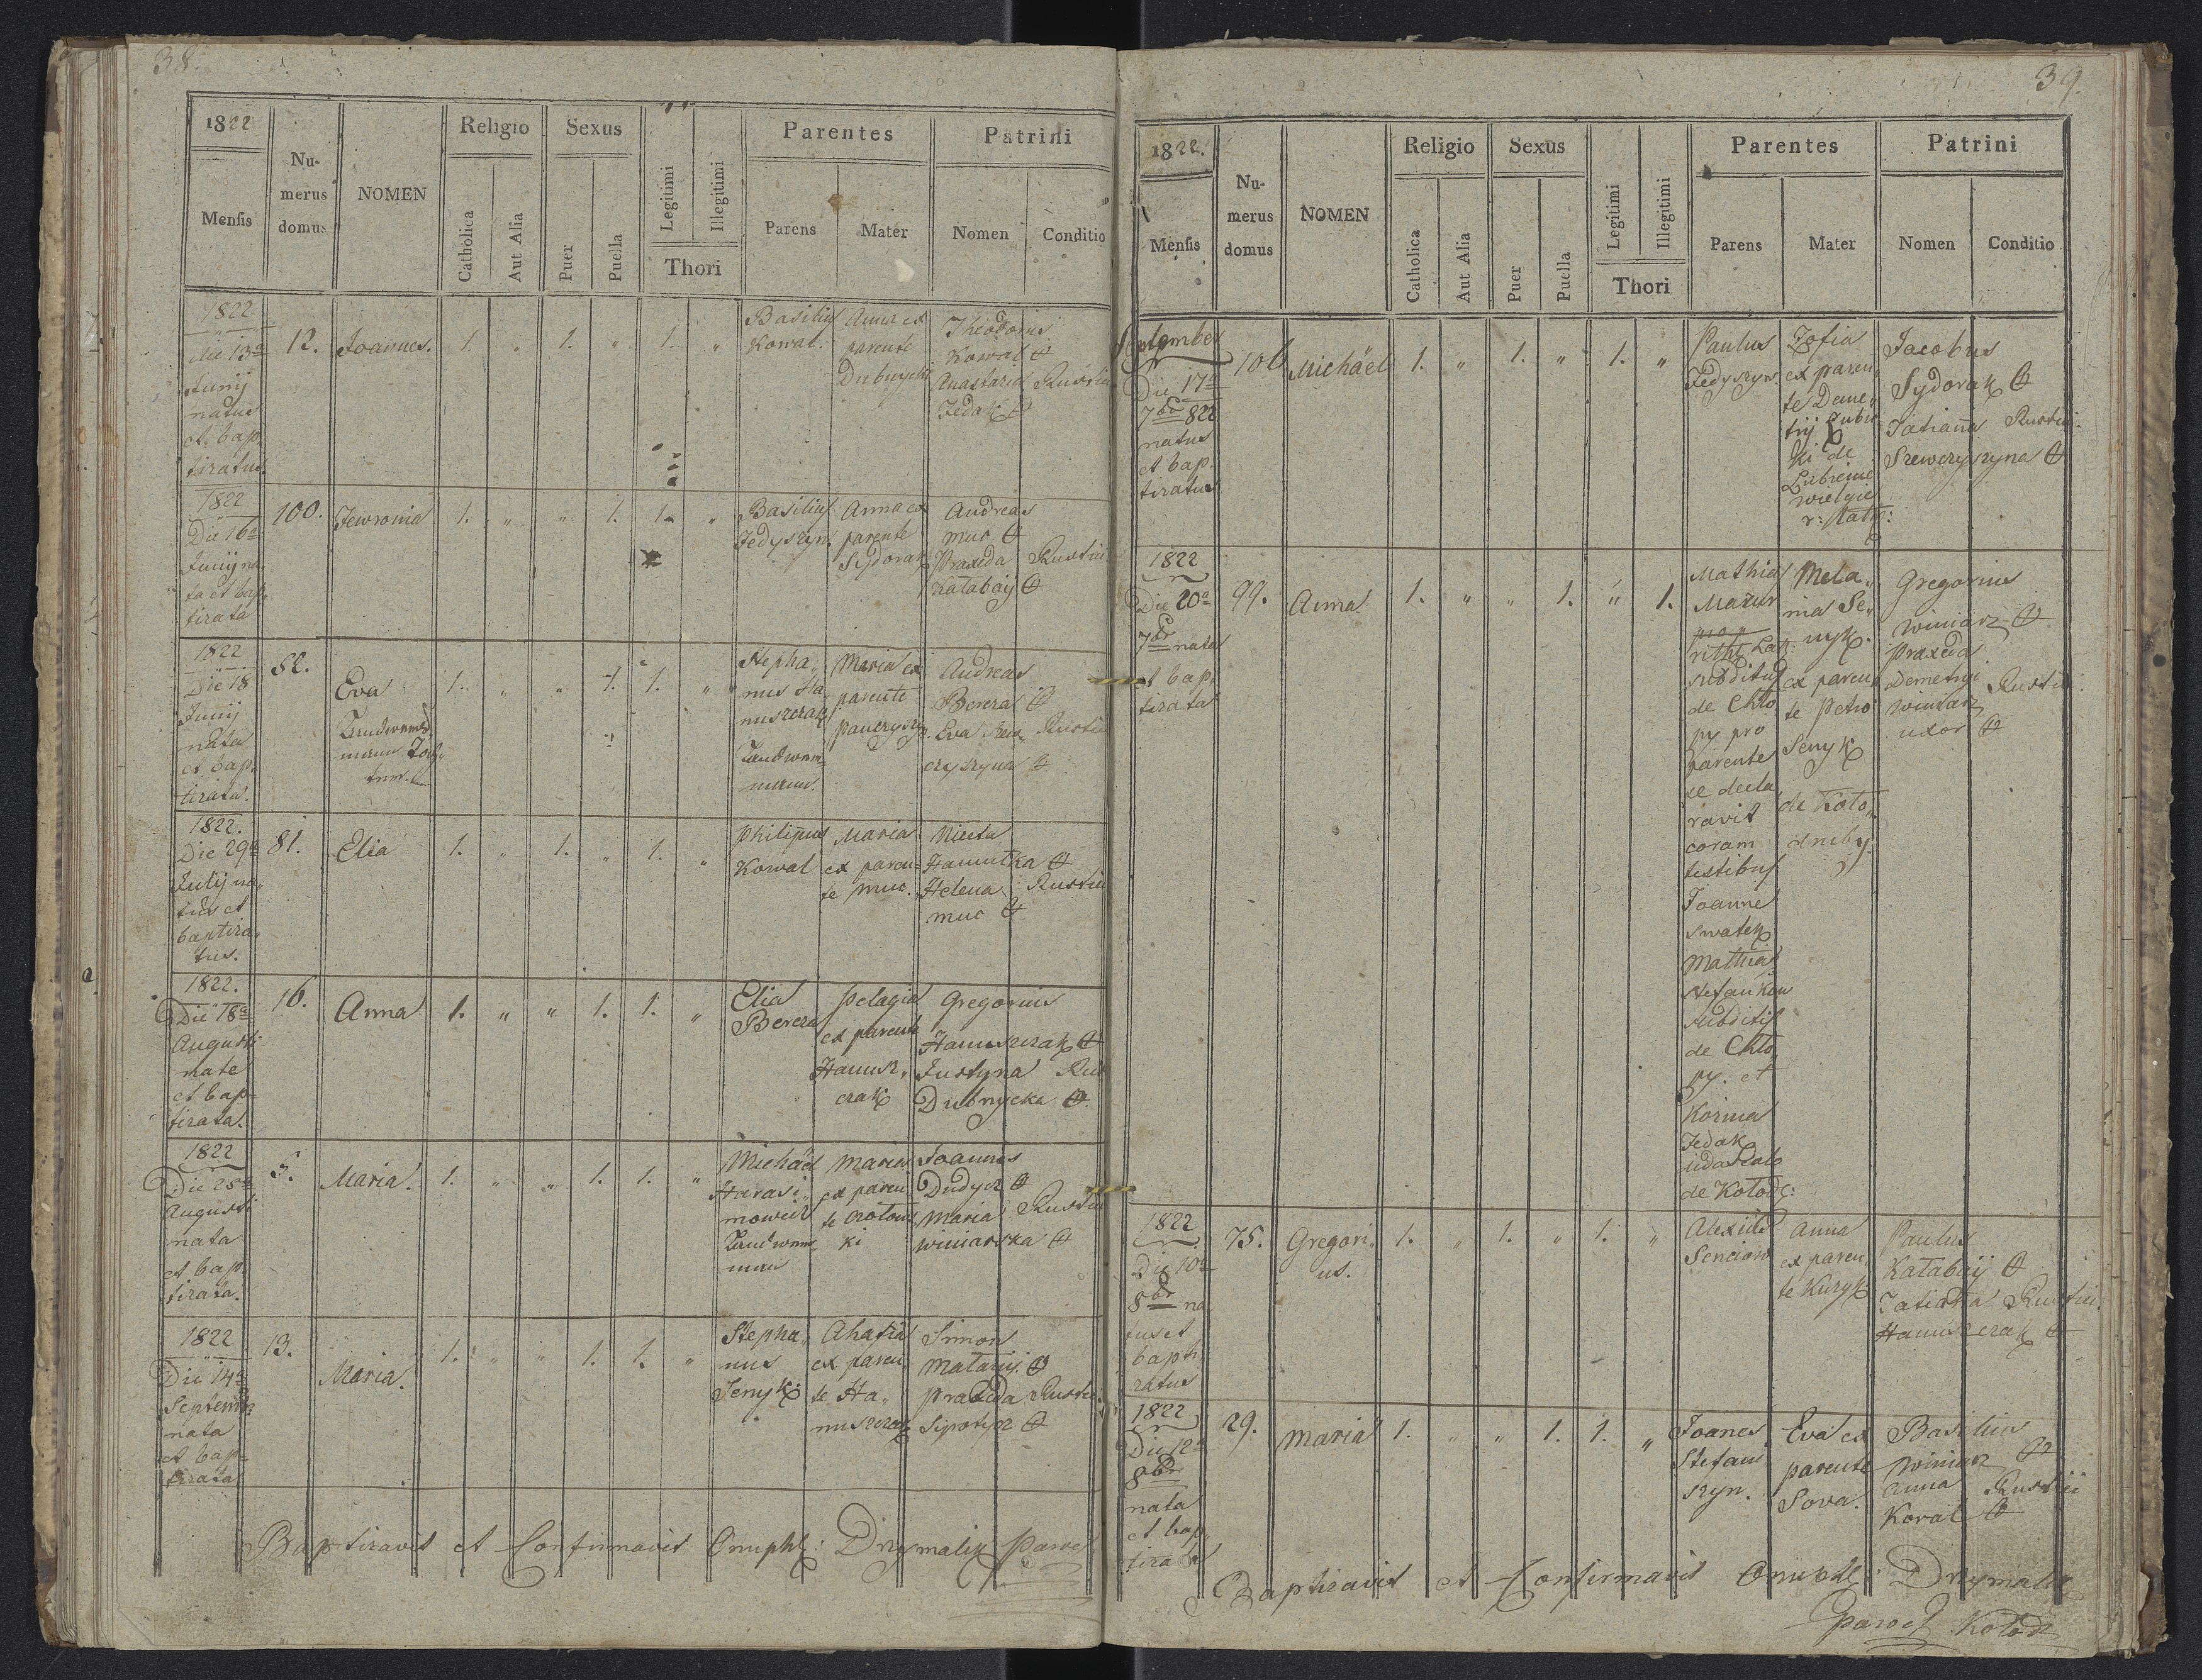 38.
1822
Mensis
Nu-
merus
domus
NOMEN
Religio
Catholica
Aut Alia
Sexus
Puer
Puella
Legitimi
Illegitimi
Thori
Parentes
Parens
Mater
Patrini
Nomen
Conditio
1822
Die 13a
Junij
natus
et bap,
tizatus.
12.
Joannes.
1.
"
1.
"
1.
"
Basilius
Kowal.
Anna ex
parente
Theodorus
Kowal
Anastazia
Fedak
Rustici
1822
Die 16a
Junij na,
ta et bap,
tizata
100.
Jewronia
1.
"
"
1.
1.
"
Basilius
Fedyszyn.
Anna ex
parente
Sydorak
Andreas
Muc
Praxeda
Katabaij
Rustici
1822
Die 18
Junij
nata
et bap,
tizata.
82.
Eva
1.
"
"
1.
1.
"
Stepha,,
nus Ha,
nuszczak
Landwer=
mann.
Maria ex
parente
Panczyszyn.
Andreas
Bereza
Eva
Rustici
1822.
Die 29a
Julij na,
tus et
baptiza,
tus.
81.
Elia
1.
"
1.
"
1.
"
Philipus
Kowal
Maria
ex paren=
te Muc.
Niceta
Hamutka
Helena
Muc
Rustici
1822.
Die 18a
Augusti
nate
et bap=
tizata.
16.
Anna
1.
"
"
1.
1.
"
Elia
Bereza
Pelagia
ex parente
Hanusz,
czak
Gregorius
Hanuszczak
Justyna
Dubnycka
Rus
1822
Die 28a
Augusti
nata
et bap,
tizata.
5.
Maria.
1.
"
"
1.
1.
"
Michael
Harasi,,
mowicz
Maria
ex paren,
te
ki
Joannes
Dudycz
Maria
Winiarska
Rustici
1822
Die 14a
Septemb:
nata
et bap=
tizata
13.
Maria.
1.
"
"
1.
1.
"
Stepha,,
nus
Senyk
Ahafia
ex paren,
te Ha,,
nuszczak
Simon
Matwij.
Praxeda
Rustici
Baptizavit et Confirmavit Onuph: Drymalik Paroch
39.
1822.
Mensis
Nu-
merus
domus
NOMEN
Religio
Catholica
Aut Alia
Sexus
Puer
Puella
Legitimi
Illegitimi
Thori
Parentes
Parens
Mater
Patrini
Nomen
Conditio
September
Die 17a
7br 822
natus
et bap.
tizatus
106
Michäel
1.
"
1.
"
1.
"
Paulus
Fedyszyn.
Zofia
ex paren,
te Deme,
trij
ki de
Lubienie
wielgie
Jacobus
Sydorak
Tatianna
Szewczyszyna
Rustici.
1822
Die 20a
7br nata
et bap,
tizata
99.
Anna
1.
"
"
1.
"
1.
Mathias
Mazur
subditus
de Chło
py pro
parente
se decla,
ravit
coram
testibus
Joanne
Swatek
Mathia
Stefankow
subditis
de Chło,
py. et
Kozma
Fedak
de Kołodz:
Mela,,
nia Se,,
nyk.
ex paren,
te Petro
Senyk
de Koło,,
Gregorius
Winiarz
Praxeda
Demetrij
Winiarz
uxor
Rustici.
1822
Die 10a
8br na,
tus et
bapti
zatus
75.
Gregori,,
us.
1.
"
1.
"
1.
"
Alexius
Senciow
Anna
ex paren,
te Kuzyk
Paulus
Katabaij
Tatianna
Hanuszczak
Rustici.
1822
Die 12a
8br
nata
et bap,
tizata
29.
Maria
1.
"
"
1.
1.
"
Joanes
Stefani
szyn.
Eva ex
parente
Sova.
Basilius
Winiarz
Anna
Koval
Rustici
Baptizavit et Confirmavit Onuph: Drymalik
Paroch Kołodz